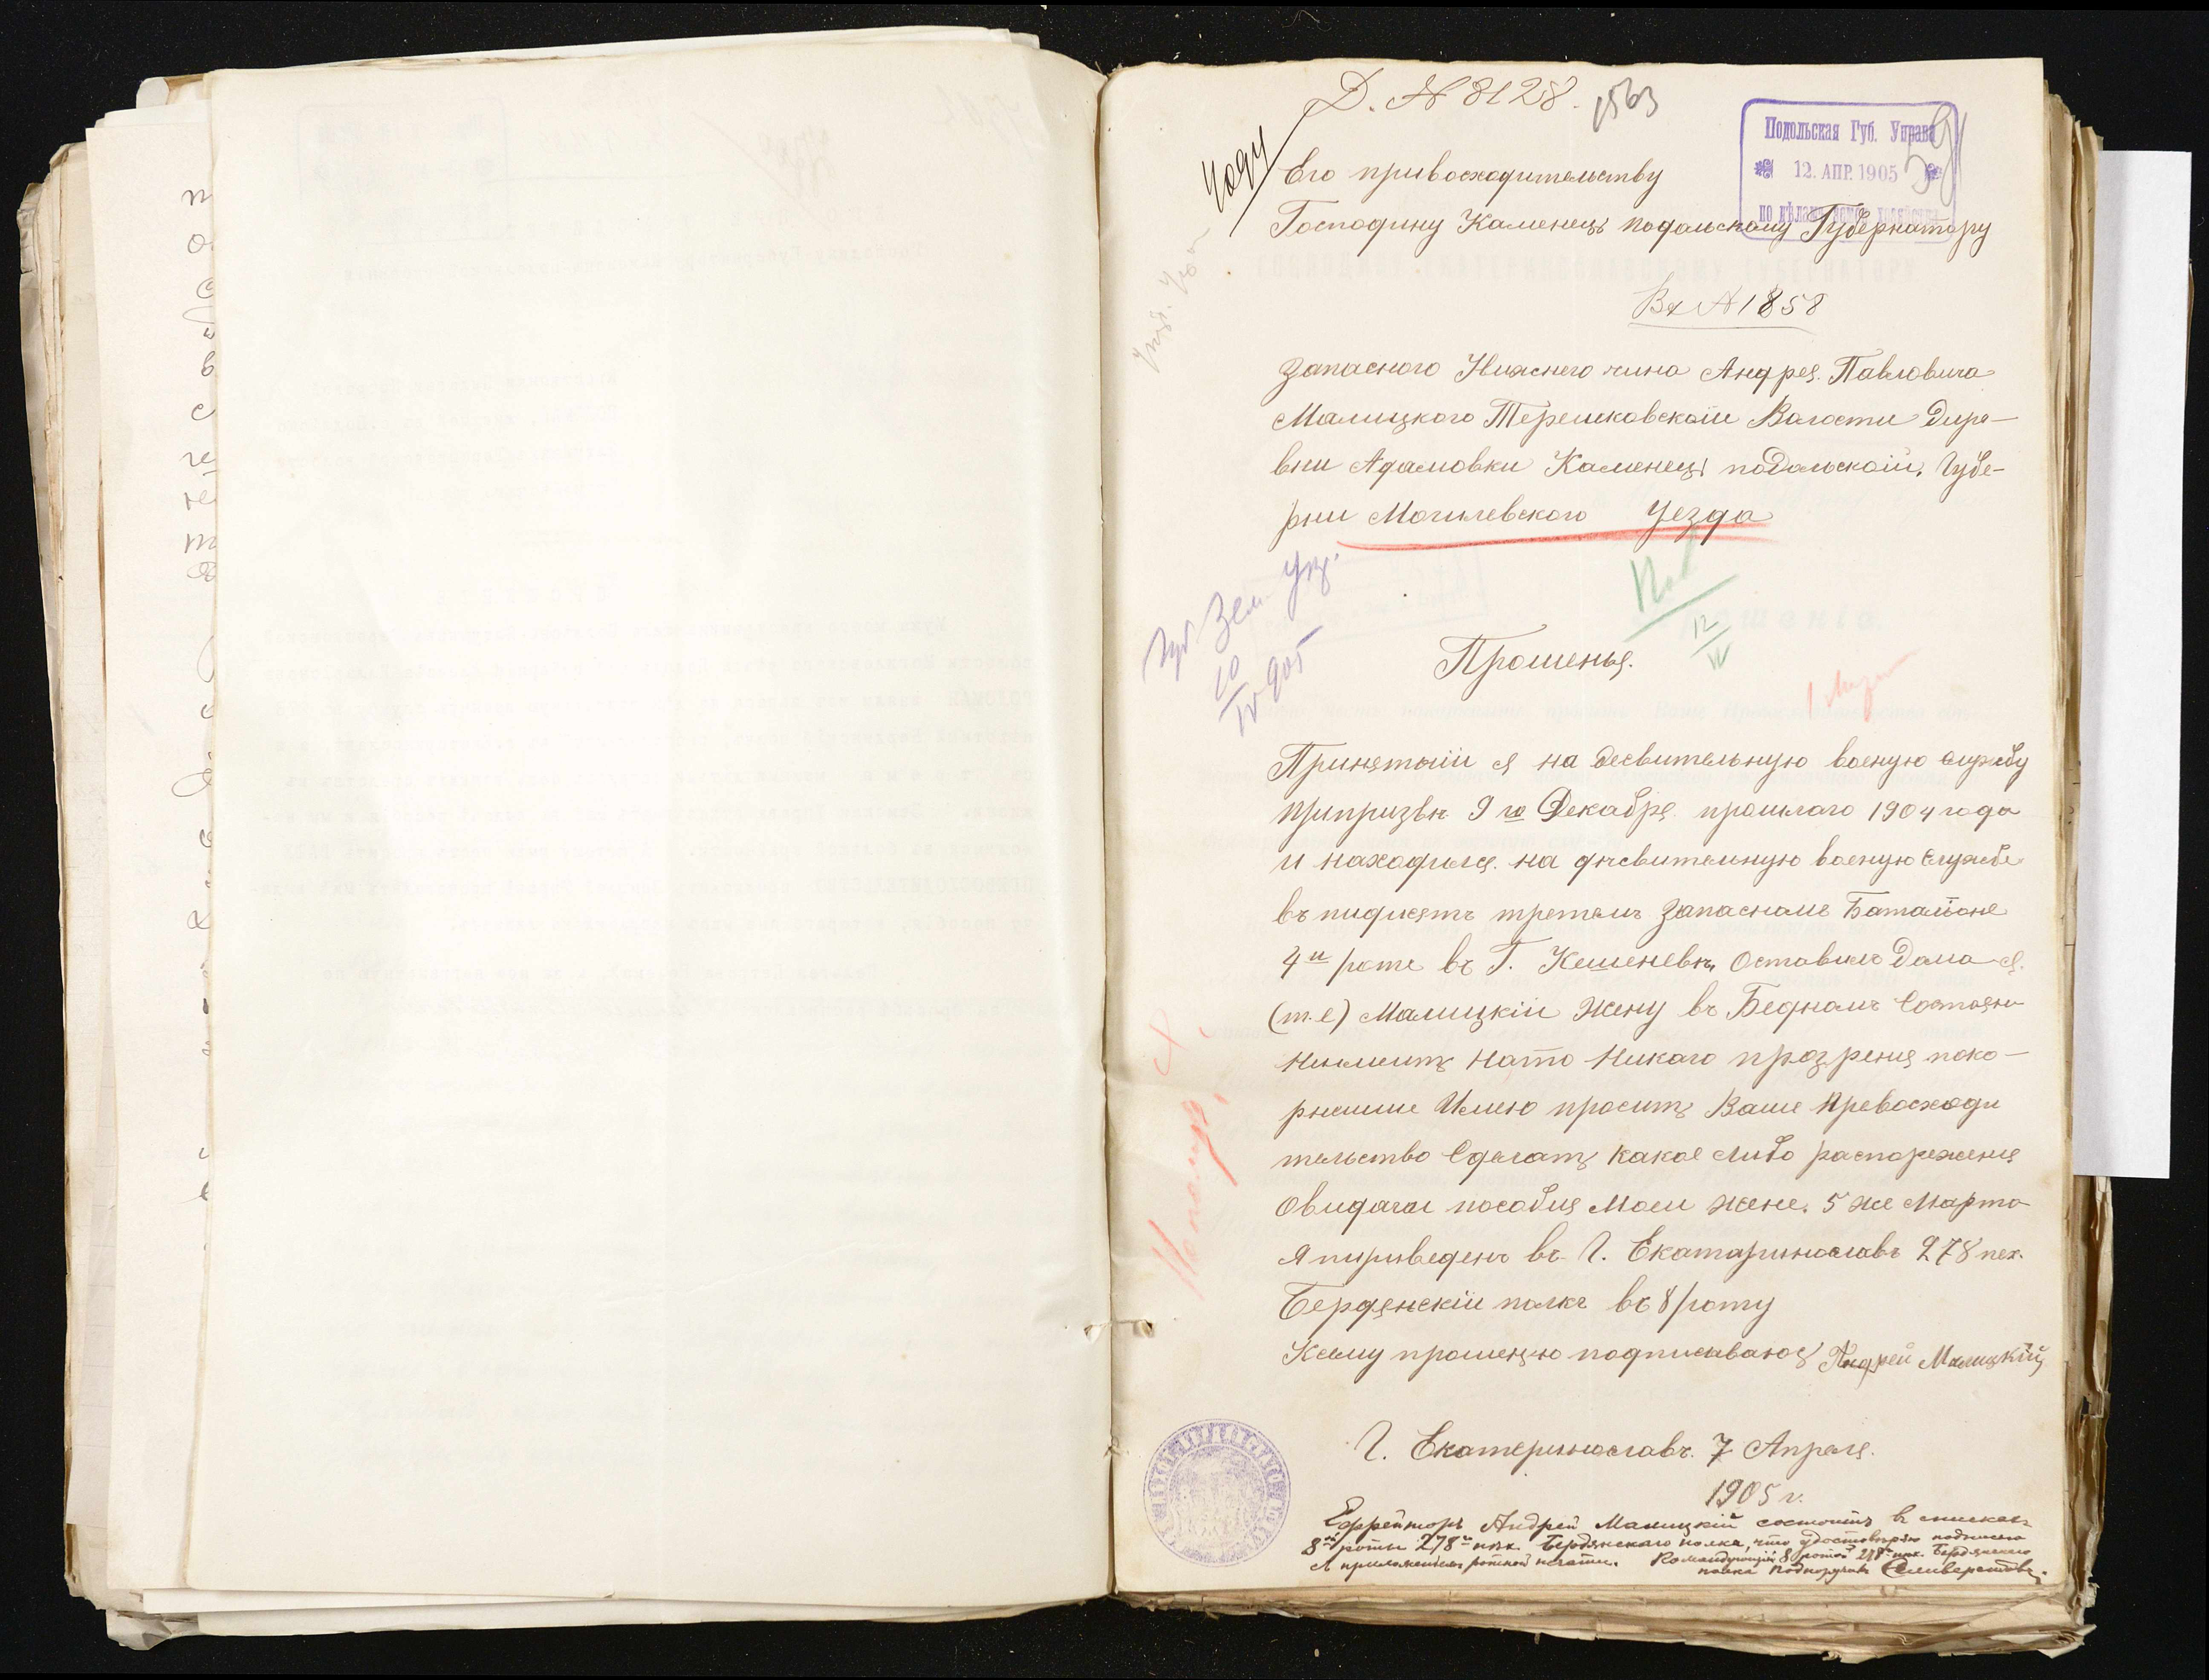 Д. № 8128.
1563
4094
Подольская Губ. Управа
12. АПР. 1905
по дѣламъ
Его привосходительству
Господину Каменецъ подольскому Губернатору
Вх № 1858
Запасного Нижнего чина Андрея Павловича
Малицкого Терешковскоій Волости Дире-
вни Адамовки Каменецъ подольскоій Губе-
рни Могилевского Уезда
12
IV
Губ Зем Упр.
10
IV 905
Прошенья.
Принятыій я на десвительную военую службу
припризвѣ 9 го Декабря прошлаго 1904 года
и находился на дѣсвительную военую службе
въ пидисятъ третемъ Запасномъ Баталіоне
4й роте въ Г. Кешеневѣ, Оставилъ Дома я
(т.е) Малицкій Жену въ Бедномъ Состояни
Неимеитъ Нато Никаго прозреня поко-
рнешше Имею проситъ Ваше превосходи
тельство Сделатъ какое либо распорежения
Овидачи пособия Моеи жене. 5 же Марта
Я пириведенъ въ Г. Екатаринославъ 278 пех.
Бердянскій полкъ въ 8 роту
Ксему прошению подписываюсъ Андрей Малицкій
Г. Екатеринославъ. 7 Апреля.
1905 г.
Ефрейторъ Андрей Малицкій состоитъ в спискахъ
8й роты 278го пѣх. Бердянскаго полка, что удостовѣряю подписью
и приложеніемъ ротной печати. Командующій 8 ротой 278го пѣх. Бердянскаго
полка Подпоручикъ Селиверстовъ.